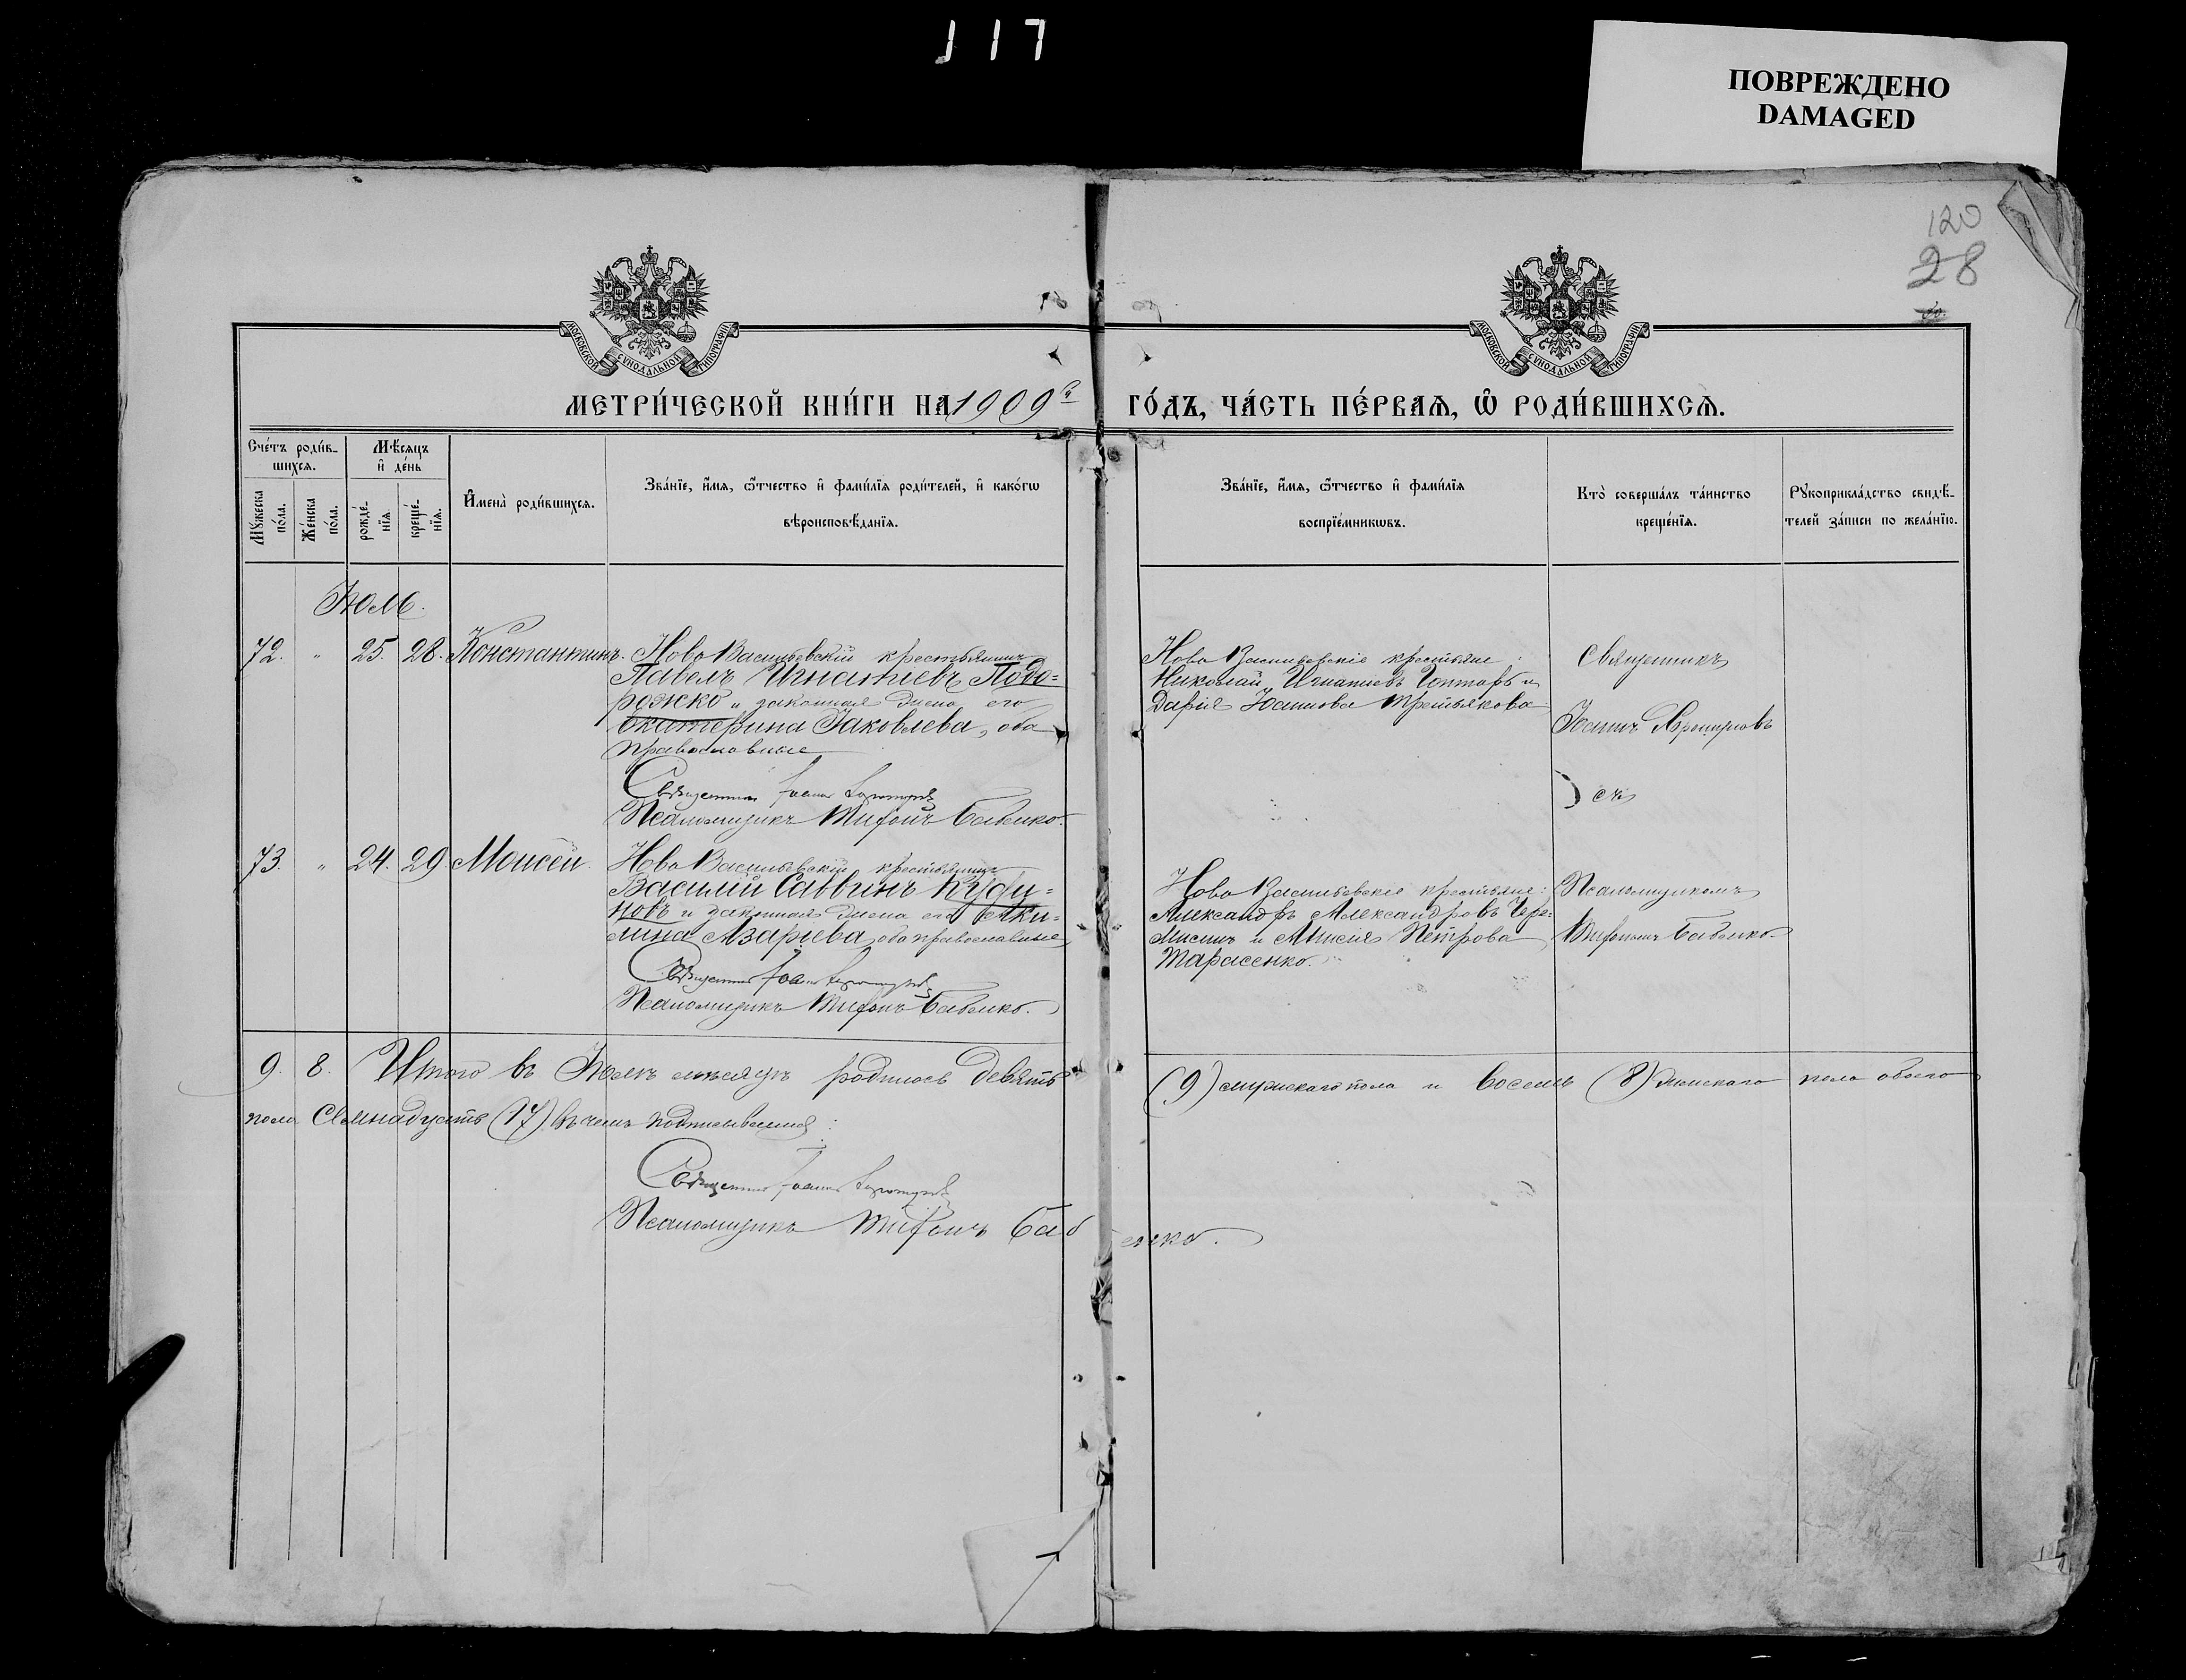 117
ПОВРЕЖДЕНО
DAMAGED
120
28
МОСКОВСКОЙ СѴНОДАЛЬНОЙ ТИПОГРАФІИ
МОСКОВСКОЙ СѴНОДАЛЬНОЙ ТИПОГРАФІИ
МЕТРИ́ЧЕСКОЙ КНИ́ГИ НА 1909 й ГО́ДЪ, ЧА́СТЬ ПЕ́РВАѦ, Ѡ҆ РОДИ́ВШИХСѦ.
Сче́тъ роди́в-
шихсѧ.
Мꙋ́жеска по́ла.
Же́нска по́ла.
Мѣ́сѧцъ
и҆ де́нь
рожде́-нїѧ.
креще́-нїѧ.
И҆мена̀ роди́вшихсѧ.
Зва́нїе, и҆́мѧ, ѻ҆́тчество и҆ фами́лїѧ роди́телей, и҆ како́гѡ
вѣроисповѣ́данїѧ.
Зва́нїе, и҆́мѧ, ѻ҆́тчество и҆ фами́лїѧ
воспрїе́мникѡвъ.
Кто̀ соверша́лъ та́инство
креще́нїѧ.
Рꙋкоприкла́дство свидѣ́-
телей за́писи по жела́нїю.
Іюль.
72. " 25. 28. Константинъ. Ново Васильевскій крестьянинъ
Павелъ Игнатіевъ Подо=
рожко и законная жена его
Екатерина Іаковлева, оба
православные
Священникъ Іоаннъ
Псаломщикъ Тифонъ Бабенко.
Ново Васильевскіе крестьяне:
Николай Игнатіевъ и
Дарія Іоаннова Третьякова
Священникъ
Іоаннъ
73. " 24. 29. Моисей. Ново Васильевскій крестьянинъ
Василій Саввинъ Куди=
новъ и законная жена его Аки=
лина Азаріева, оба православные
Священникъ Іоаннъ
Псаломщикъ Тифонъ Бабенко.
Ново Васильевскіе крестьяне:
Александръ Александровъ Чере=
мисинъ и Анисія Петрова
Тарасенко.
Псаломщикомъ
Тифономъ Бабенко.
9. 8. Итого въ Іюлѣ мѣсяцѣ родилось девять (9) мужскаго пола и восемь (8) женскаго пола обоего
пола семнадцать (17). Въ чемъ подписываемся:
Священникъ Іоаннъ
Псаломщикъ Тифонъ Бабенко.